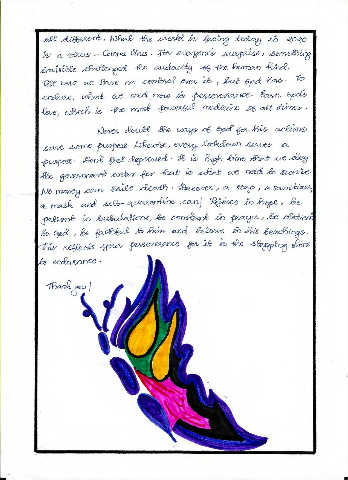 all different. What the world is facing today in 2020
is a virus - Corona Virus. For everyone's surprise, something
invisible challenged the audacity of the human kind.
But we have no control over it, but God has. To
endure, what we need now is perseverance. Pawn God's
love, which is the most powerful medicine of all times.
Never doubt the ways of God for his actions
serve some purpose. Likewise, every lockdown serves a
purpose. Don't feel depressed. It is high time that we obey
the government order for that is what we need to survive.
No money can smile death. However, a soap, a sanitizer,
a mask and self-quarantine can! Rejoice in hope, be
patient in tribulations, be constant in prayer, be obedient
to God, be faithful to him and believe in his teachings.
This reflects your perseverance for it is the stepping stone
to endurance.
Thank you!